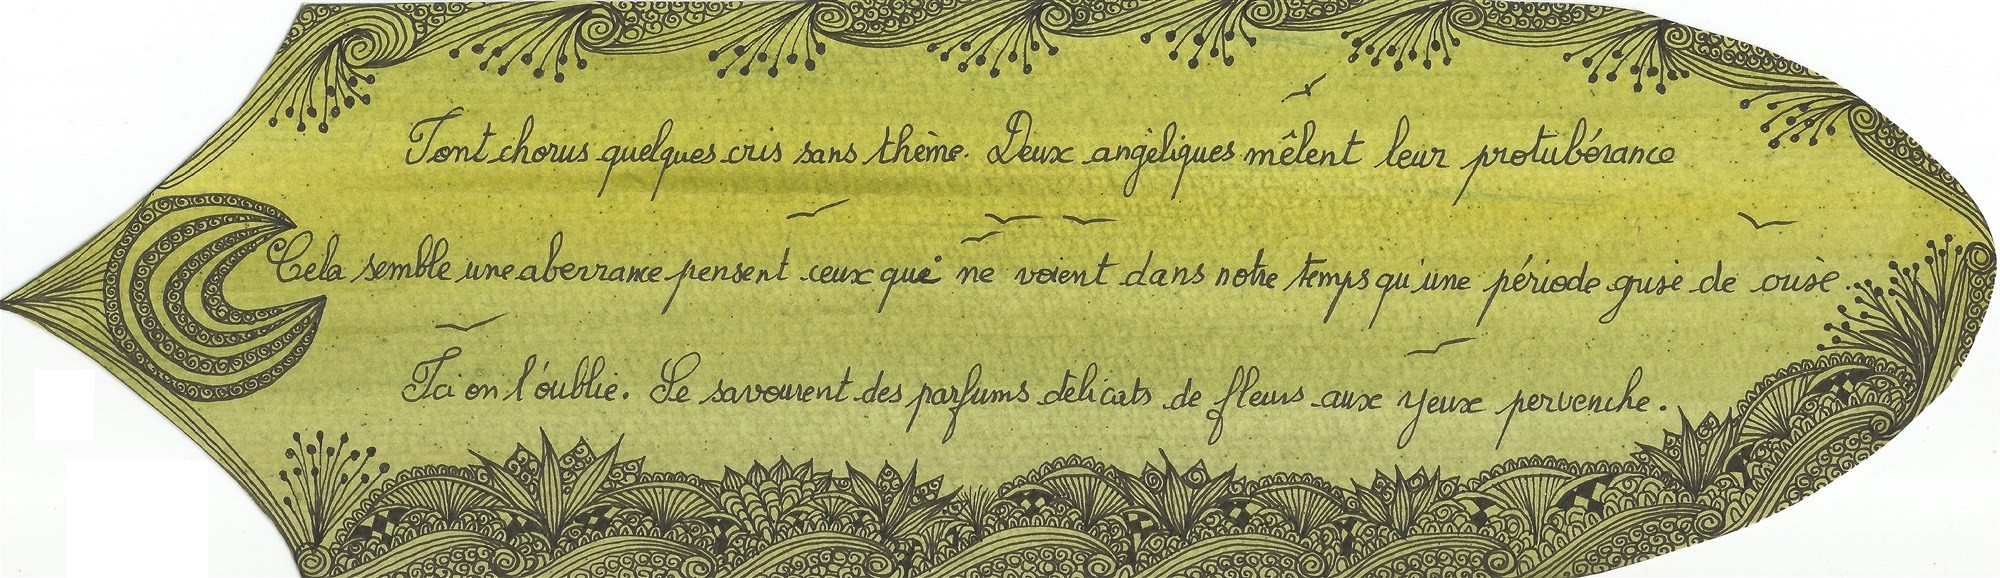 Font chorus quelques cris sans thème. Deux angéliques mêlent leur protubérance
Cela semble une aberrance pensent ceux qui ne voient dans notre temps qu'une période grise de ouise.
Ici on l'oublie. Se savourent des parfums délicats de fleurs aux yeux pervenche.